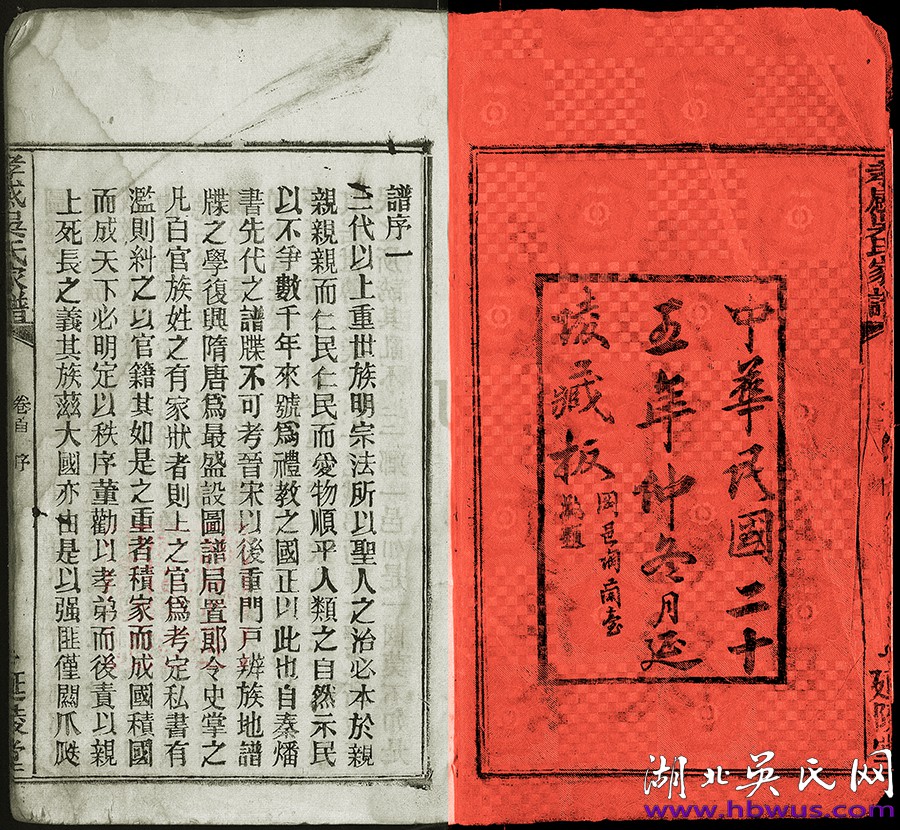 中華民國二十
五年仲冬月延
陵藏板
岡邑
題
孝感吳氏家譜
譜序一
三代以上重世族明宗法所以聖人之治必本於親
親親親而仁民仁民而愛物順乎人類之自然示民
以不爭數千年來號爲禮教之國正以此也自秦燔
書先代之譜牒不可考晉宋以後重門戸辨族地譜
牒之學復興隋唐爲最盛設圖譜局置郎令史掌之
凡百官族姓之有家狀者則上之官爲考定私書有
濫則糾之以官籍其如是之重者積家而成國積國
而成天下必明定以秩序董勸以孝弟而後責以親
上死長之義其族茲大國亦由是以强匪僅閥爪瓞
孝感吳氏家譜
卷首 序
延陵堂
湖北吳氏网
www.hbwus.com